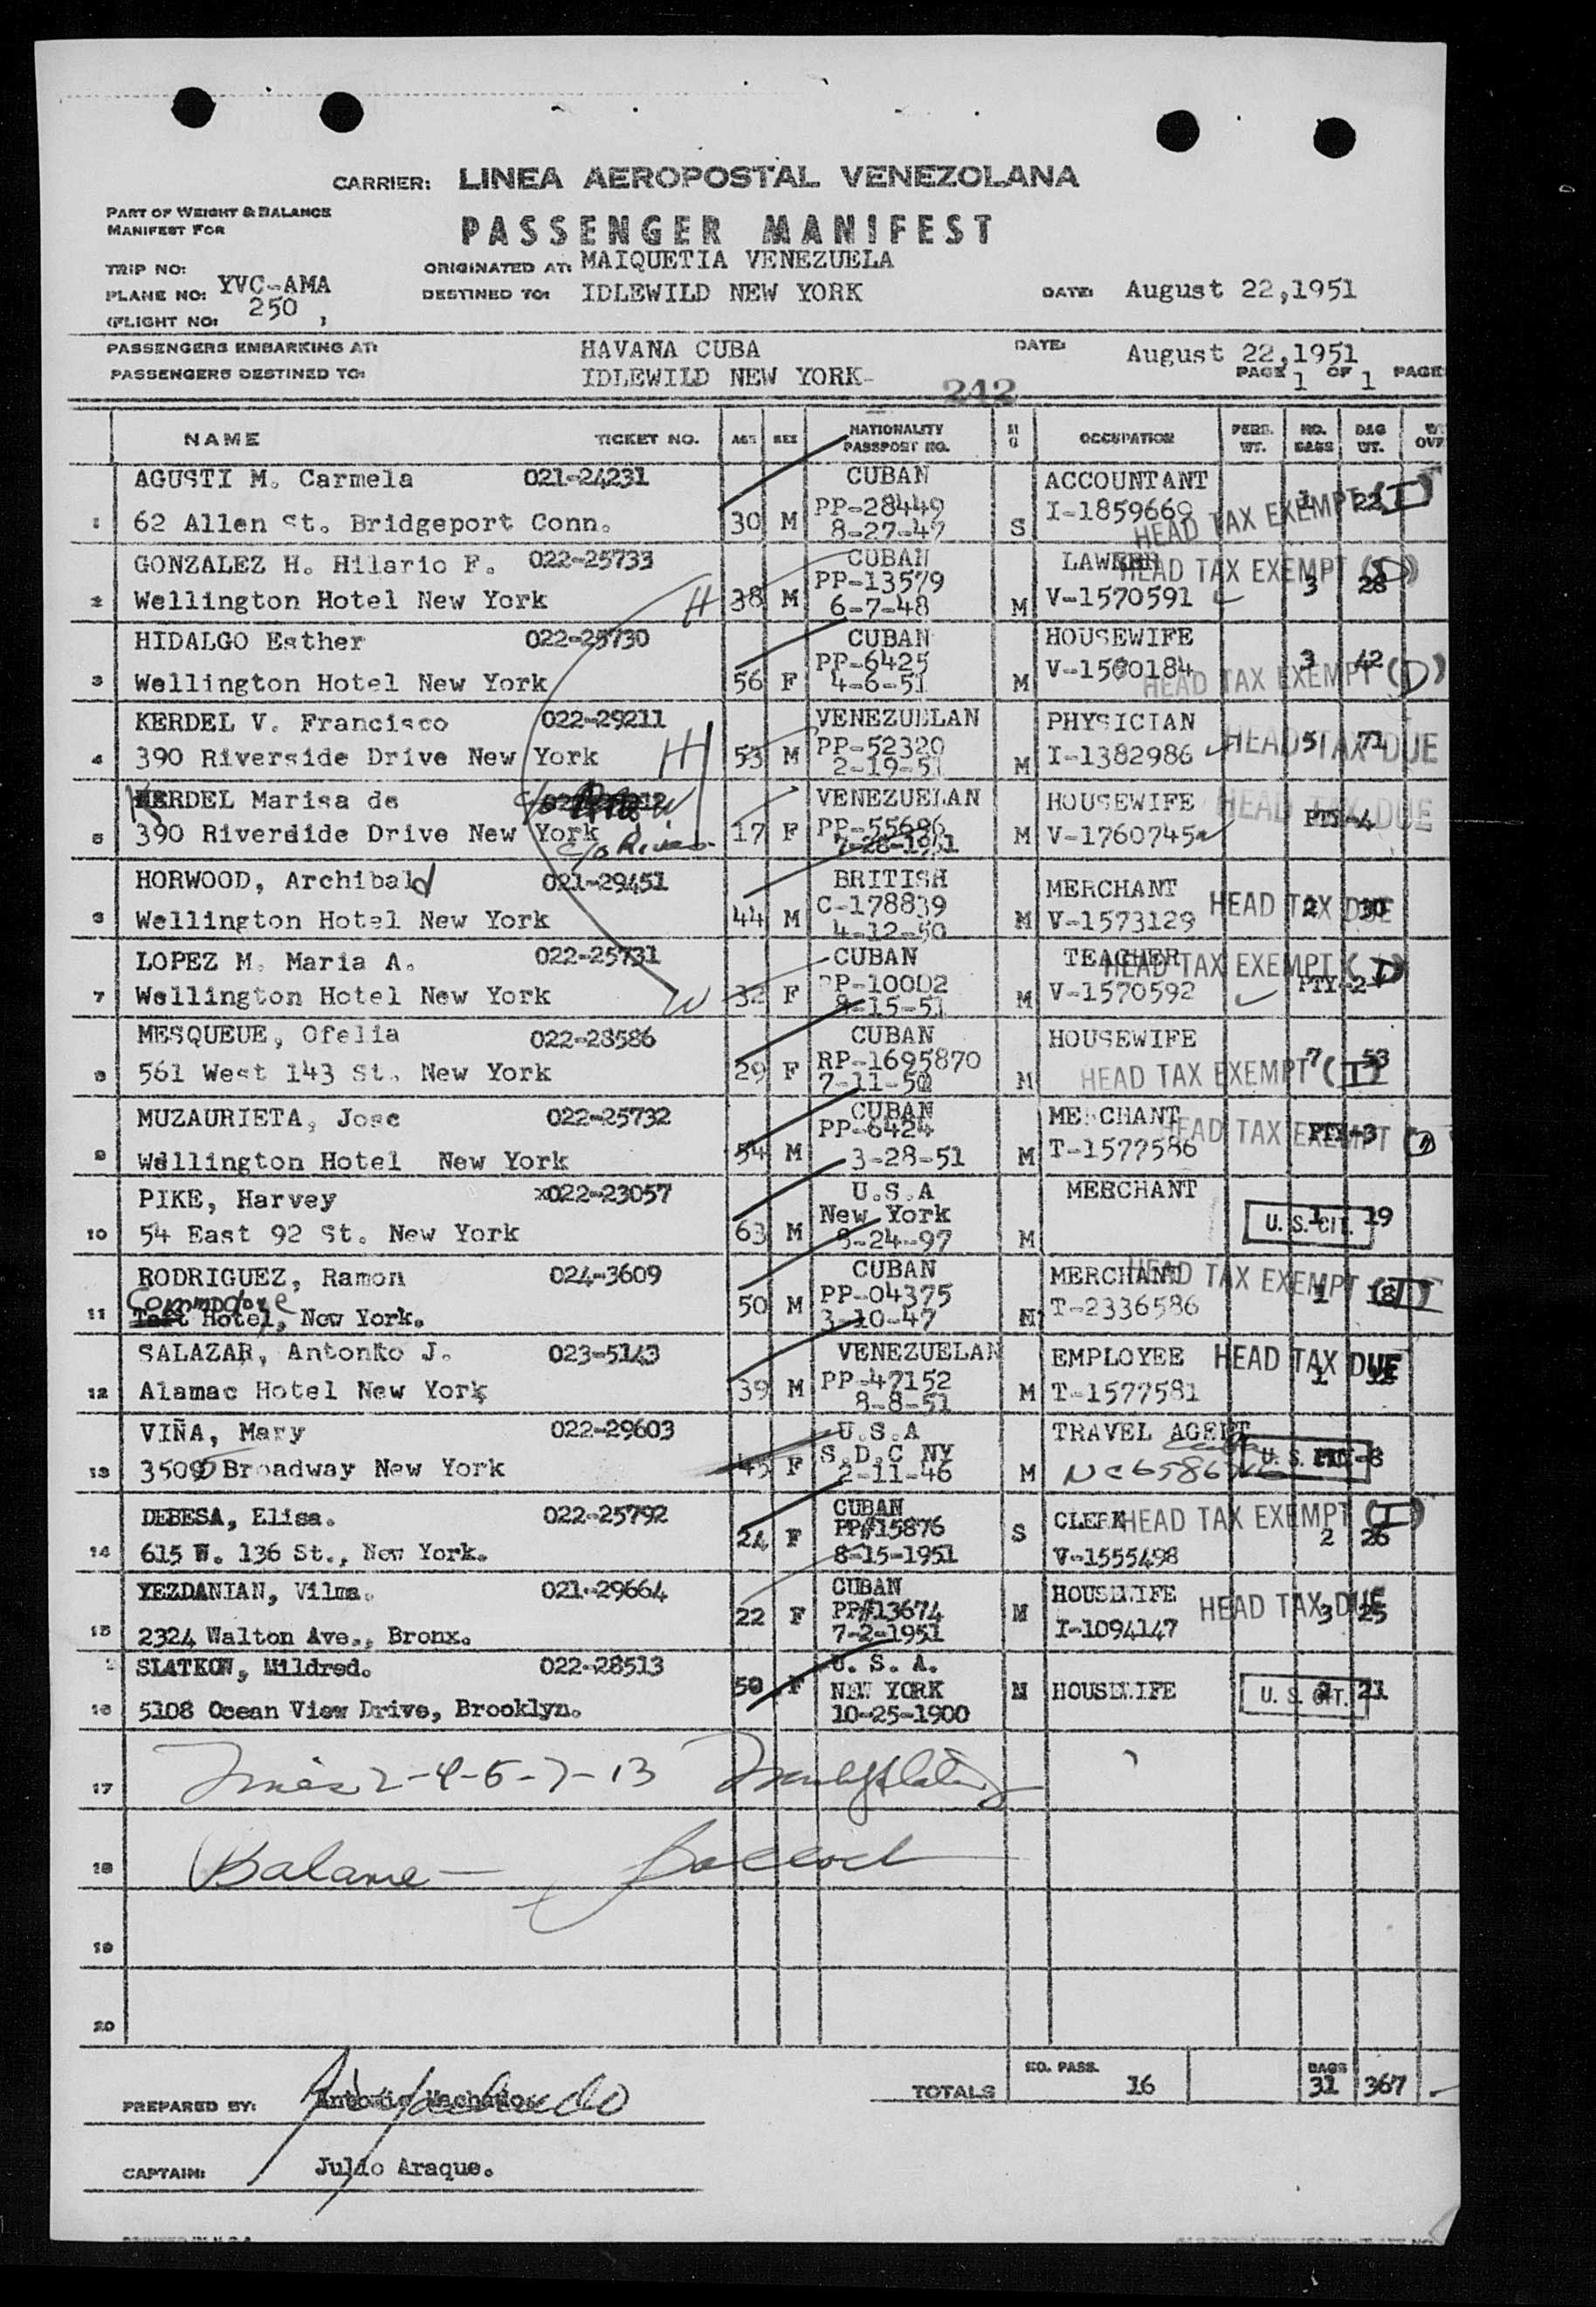 CARRIER: LINEA AEROPOSTAL VENEZOLANA
PART OF WEIGHT & BALANCE
MANIFEST FOR
PASSENGER MANIFEST
TRIP NO:
PLANE NO: YVC-AMA
(FLIGHT NO: 250 )
ORIGINATED AT: MAIQUETIA VENEZUELA
DESTINED TO: IDLEWILD NEW YORK
DATE: August 22,1951
PASSENGERS EMBARKING AT: HAVANA CUBA
DATE: August 22,1951
PASSENGERS DESTINED TO: IDLEWILD NEW YORK-
PAGE 1 OF 1 PAGE
242
NAME TICKET NO. AGE SEX NATIONALITY PASSPORT NO. OCCUPATION PERS. WT. NO. BAGS BAG WT.
AGUSTI M. Carmela 021-24231 CUBAN ACCOUNTANT
1 62 Allen St. Bridgeport Conn. 30 M PP-28449 8-27-47 S I-1859660 1 22
HEAD TAX EXEMPT (I)
GONZALEZ H. Hilario F. 022-25733 CUBAN
HEAD TAX EXEMPT (D)
2 Wellington Hotel New York H 38 M PP-13579 6-7-48 M V-1570591 3 28
HIDALGO Esther 022-25730 CUBAN HOUSEWIFE
3 Wellington Hotel New York 56 F PP-6425 4-6-51 M V-1560184 3 42
HEAD TAX EXEMPT (D)
KERDEL V. Francisco 022-29211 VENEZUELAN PHYSICIAN
4 390 Riverside Drive New York H 53 M PP-52320 2-19-51 M I-1382986 5 71
HEAD TAX DUE
KERDEL Marisa de VENEZUELAN HOUSEWIFE
5 390 Riverdide Drive New York 17 F PP-55686 7-28-1951 M V-1760745 PTY-4
HEAD TAX DUE
HORWOOD, Archibald 021-29451 BRITISH MERCHANT
6 Wellington Hotel New York 44 M C-178839 4-12-50 M V-1573129 2 30
HEAD TAX DUE
LOPEZ M. Maria A. 022-25731 CUBAN TEACHER
HEAD TAX EXEMPT (D)
7 Wellington Hotel New York W 32 F PP-10002 M V-1570592 PTY-2
MESQUEUE, Ofelia 022-28586 CUBAN HOUSEWIFE
8 561 West 143 St. New York 29 F RP-1695870 7-11-50 M 7 53
HEAD TAX EXEMPT (I)
MUZAURIETA, Jose 022-25732 CUBAN MERCHANT
9 Wellington Hotel New York 54 M PP-6424 3-28-51 M T-1577586 PTY-3
HEAD TAX EXEMPT (D)
PIKE, Harvey 022-23057 U.S.A MERCHANT
10 54 East 92 St. New York 63 M New York M 1 19
U. S. CIT.
RODRIGUEZ, Ramon 024-3609 CUBAN MERCHANT
HEAD TAX EXEMPT (I)
Commodore
11 Taft Hotel, New York. 50 M PP-04375 3-10-47 M T-2336586 1 18
SALAZAR, Antonio J. 023-5143 VENEZUELAN EMPLOYEE
HEAD TAX DUE
12 Alamac Hotel New York 39 M PP-47152 8-8-51 M T-1577581 1 12
VIÑA, Mary 022-29603 U.S.A TRAVEL AGENT
13 3505 Broadway New York 45 F S.D.C NY 2-11-46 M
U. S. CIT.
DEBESA, Elisa. 022-25792 CUBAN CLERK
HEAD TAX EXEMPT (I)
14 615 W. 136 St., New York. 24 F PP#15876 8-15-1951 S V-1555498 2 26
YEZDANIAN, Vilma. 021-29664 CUBAN HOUSEWIFE
15 2324 Walton Ave., Bronx. 22 F PP#13674 7-2-1951 M I-1094147 3 25
HEAD TAX DUE
SLATKOW, Mildred. 022-28513 U. S. A.
16 5108 Ocean View Drive, Brooklyn. 50 F NEW YORK 10-25-1900 M HOUSEWIFE 2 21
U. S. CIT.
17 2-4-5-7-13
18 Balance
19
20
TOTALS NO. PASS. 16 BAGS 31 367
PREPARED BY: Antonio Machado
CAPTAIN: Julio Araque.